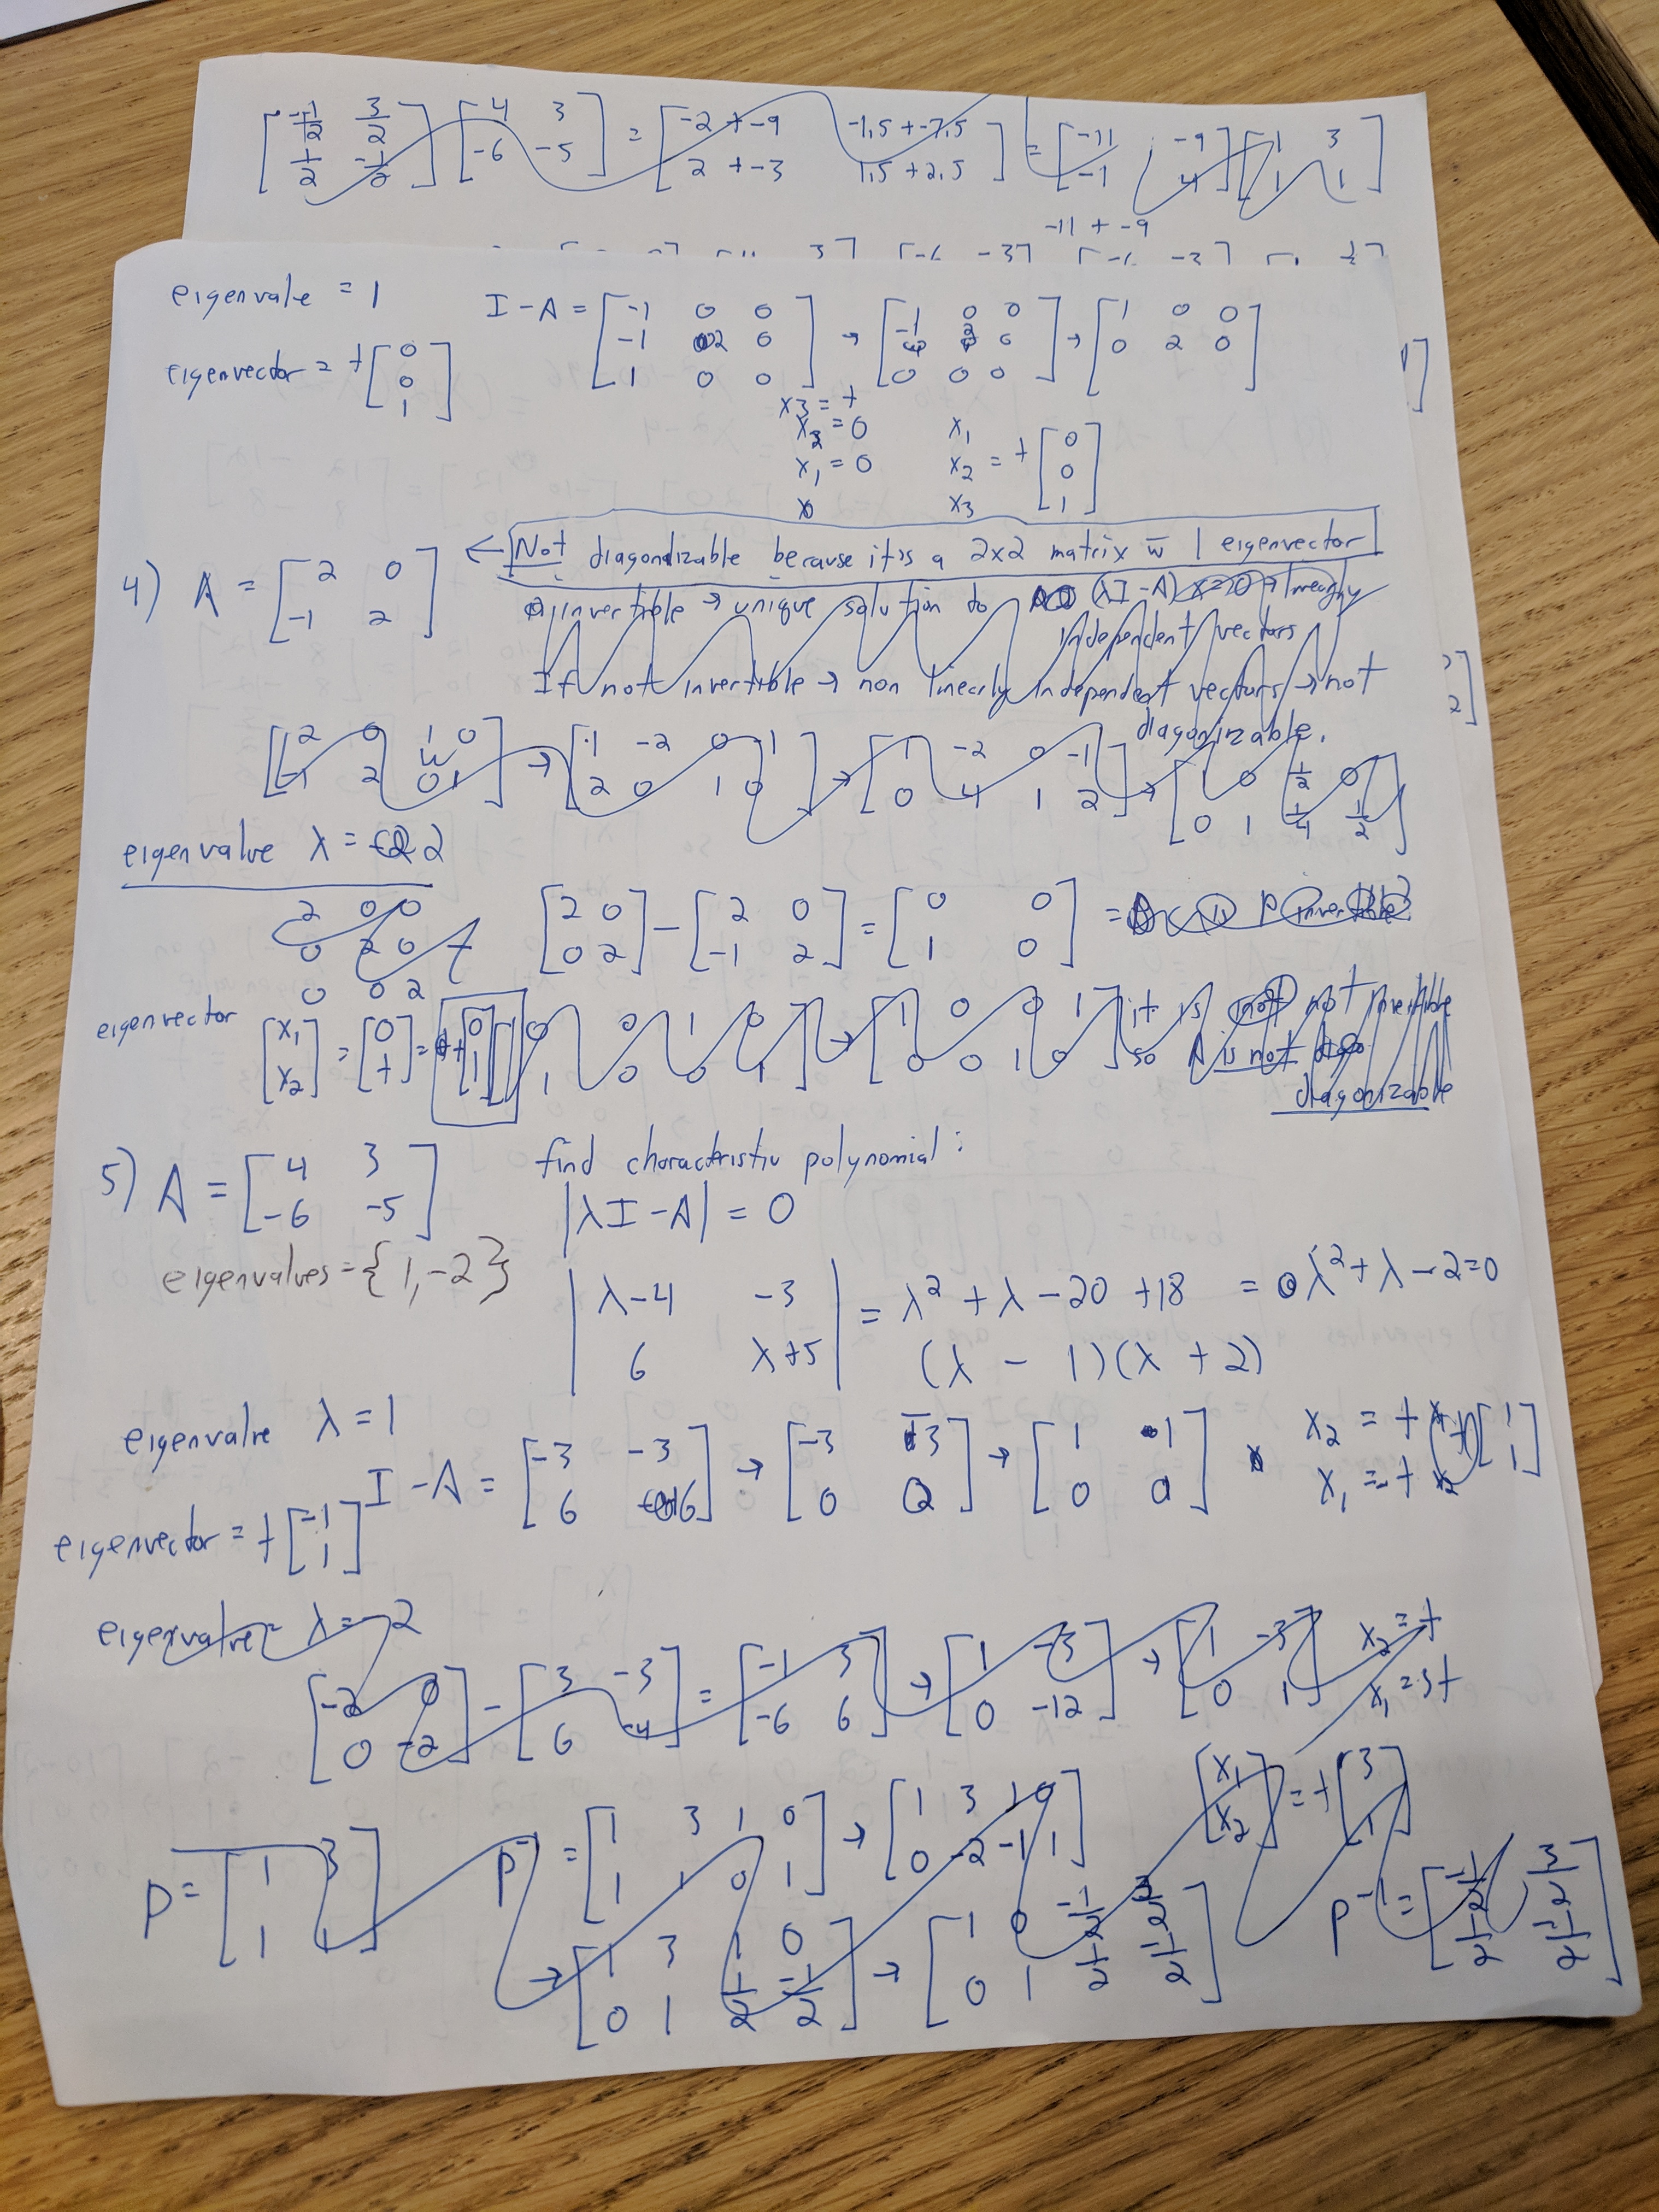 [-1/2 3/2; 1/2 -1/2] [4 3; -6 -5] = [-2 + -9 -1.5 + -7.5; 2 + -3 1.5 + 2.5] = [-11 -9; -1 4] [1 3; 1 1]
-11 + -9
eigenvalue = 1
I - A = [-1 0 0; -1 2 0; 1 0 0] → [-1 0 0; 2 0; 0 0 0] → [1 0 0; 0 2 0]
eigenvector = t [0; 0; 1]
x3 = t
x2 = 0
x1 = 0
x1
x2 = t [0; 0; 1]
x3
4) A = [2 0; -1 2] ← Not diagonalizable because it's a 2x2 matrix w̄ 1 eigenvector
invertible → unique solution to (λI - A) x = 0 → linearly
independent vectors
If not invertible → non linearly independent vectors → not
diagonizable.
[2 0 1 0; -1 2 0 1] → [1 -2 0 -1; 2 0 1 0] → [1 -2 0 -1; 0 4 1 2] → [1 0 1/2 0; 0 1 1/4 1/2]
eigenvalue λ = 2
2 0 0
0 2 0
0 0 2
[2 0; 0 2] - [2 0; -1 2] = [0 0; 1 0] = P invertible?
eigenvector [x1; x2] = [0; t] = t [0; 1]
[0 0 1 0; 1 0 0 1] → [1 0 0 1; 0 0 1 0] it is not not invertible
so A is not
diagonizable
5) A = [4 3; -6 -5] find characteristic polynomial:
|λI - A| = 0
eigenvalues = {1, -2}
|λ-4 -3; 6 λ+5| = λ² + λ - 20 + 18 = λ² + λ - 2 = 0
(λ - 1)(λ + 2)
eigenvalue λ = 1
I - A = [-3 -3; 6 6] → [-3 -3; 0 0] → [1 1; 0 0] x2 = t
x1 = -t
[1; 1]
eigenvector = t [-1; 1]
eigenvalue λ = -2
[-2 0; 0 -2] - [3 -3; 6 -4] = [-1 3; -6 6] → [1 -3; 0 -12] → [1 -3; 0 1] x2 = t
x1 = 3t
[x1; x2] = t [3; 1]
P = [1 3; 1 1] P⁻¹ = [1 3 1 0; 1 1 0 1] → [1 3 1 0; 0 -2 -1 1]
→ [1 3 1 0; 0 1 1/2 -1/2] → [1 0 -1/2 3/2; 0 1 1/2 -1/2]
P⁻¹ = [-1/2 3/2; 1/2 -1/2]